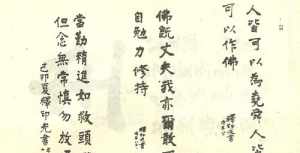 人皆可以為堯舜人皆
可以作佛
佛說丈夫我亦爾敢
自勉力修持
當勤精進如救頭
但念無常慎勿放
己卯夏釋印光書